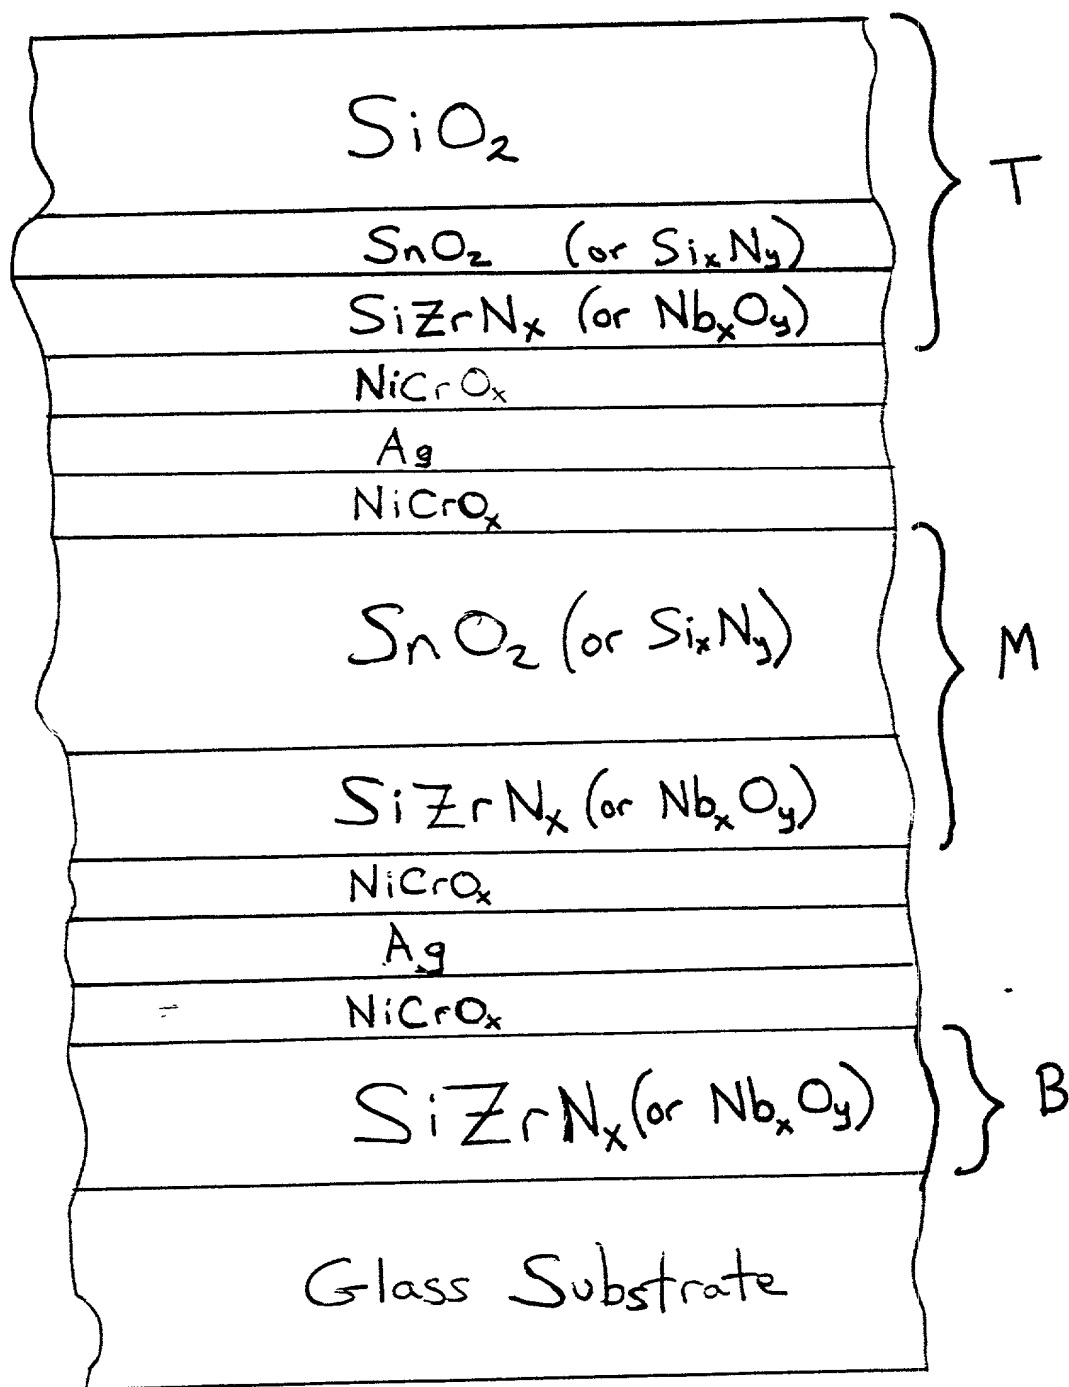 SiO₂
T
SnO₂ (or SiₓNᵧ)
SiZrNₓ (or NbₓOᵧ)
NiCrOₓ
Ag
NiCrOₓ
SnO₂ (or SiₓNᵧ)
M
SiZrNₓ (or NbₓOᵧ)
NiCrOₓ
Ag
NiCrOₓ
SiZrNₓ (or NbₓOᵧ)
B
Glass Substrate